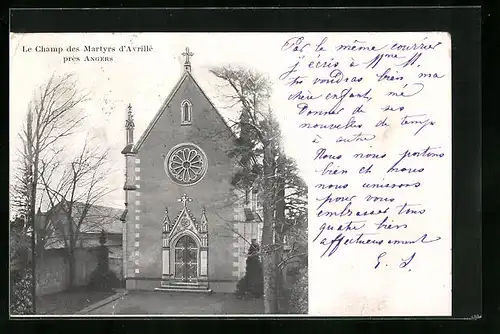 Le Champ des Martyrs d'Avrillé
près ANGERS
Par le même courrier
j'écris à Mme M.
tu voudras bien ma
chère enfant, me
donner de ses
nouvelles de temps
à autre
Nous nous portons
bien et nous
nous unissons
pour vous
embrasser tous
quatre bien
affectueusement
E. S.